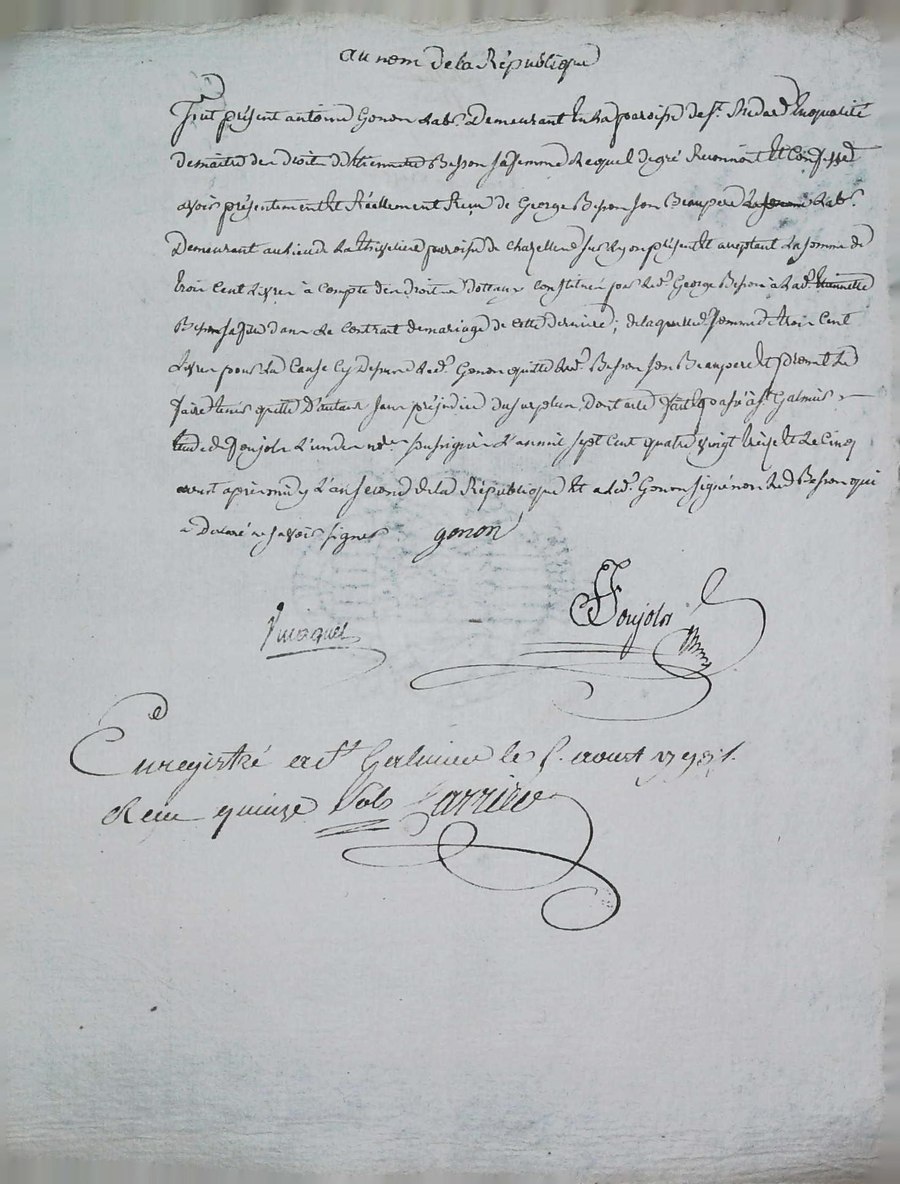 au nom de la République
Fut présent antoine Gonon Lab.r Demeurant En La paroisse de s.t Medard En qualité
de maitre des Droits d'Etiennette Besson sa femme Lequel de gré Reconnoit Et Confesse
avoir présentement Et Réellement Reçu de George Besson son Beaupere Lab.r
Demeurant au Lieu de La paroisse de Chazelle sur Lyon présent Et acceptant La somme de
trois Cent Livres à Compte des Droits Dottaux Constitués par Led. George Besson à Lad.
Besson sa fille dans Le Contrat de mariage de cette derniere; de laquelle somme de trois Cent
Livres pour La Cause Cy dessus Led. Gonon quitte Led. Besson son Beaupere Et promet Le
faire tenir quitte D'autans sans préjudice du surplus, Dont acte fait Et passé à s.t Galmier
Etude de Ponjols L'un des no.res soussignés L'an mil sept Cent quatre vingt treize Et Le Cinq
aoust après midy L'an second de la République Et a Led. Gonon signé non Led. Besson qui
a Declaré ne savoir signer gonon
Ponjols
Enregistré a s.t Galmier le 5. aoust 1793.
Reçu quinze sols